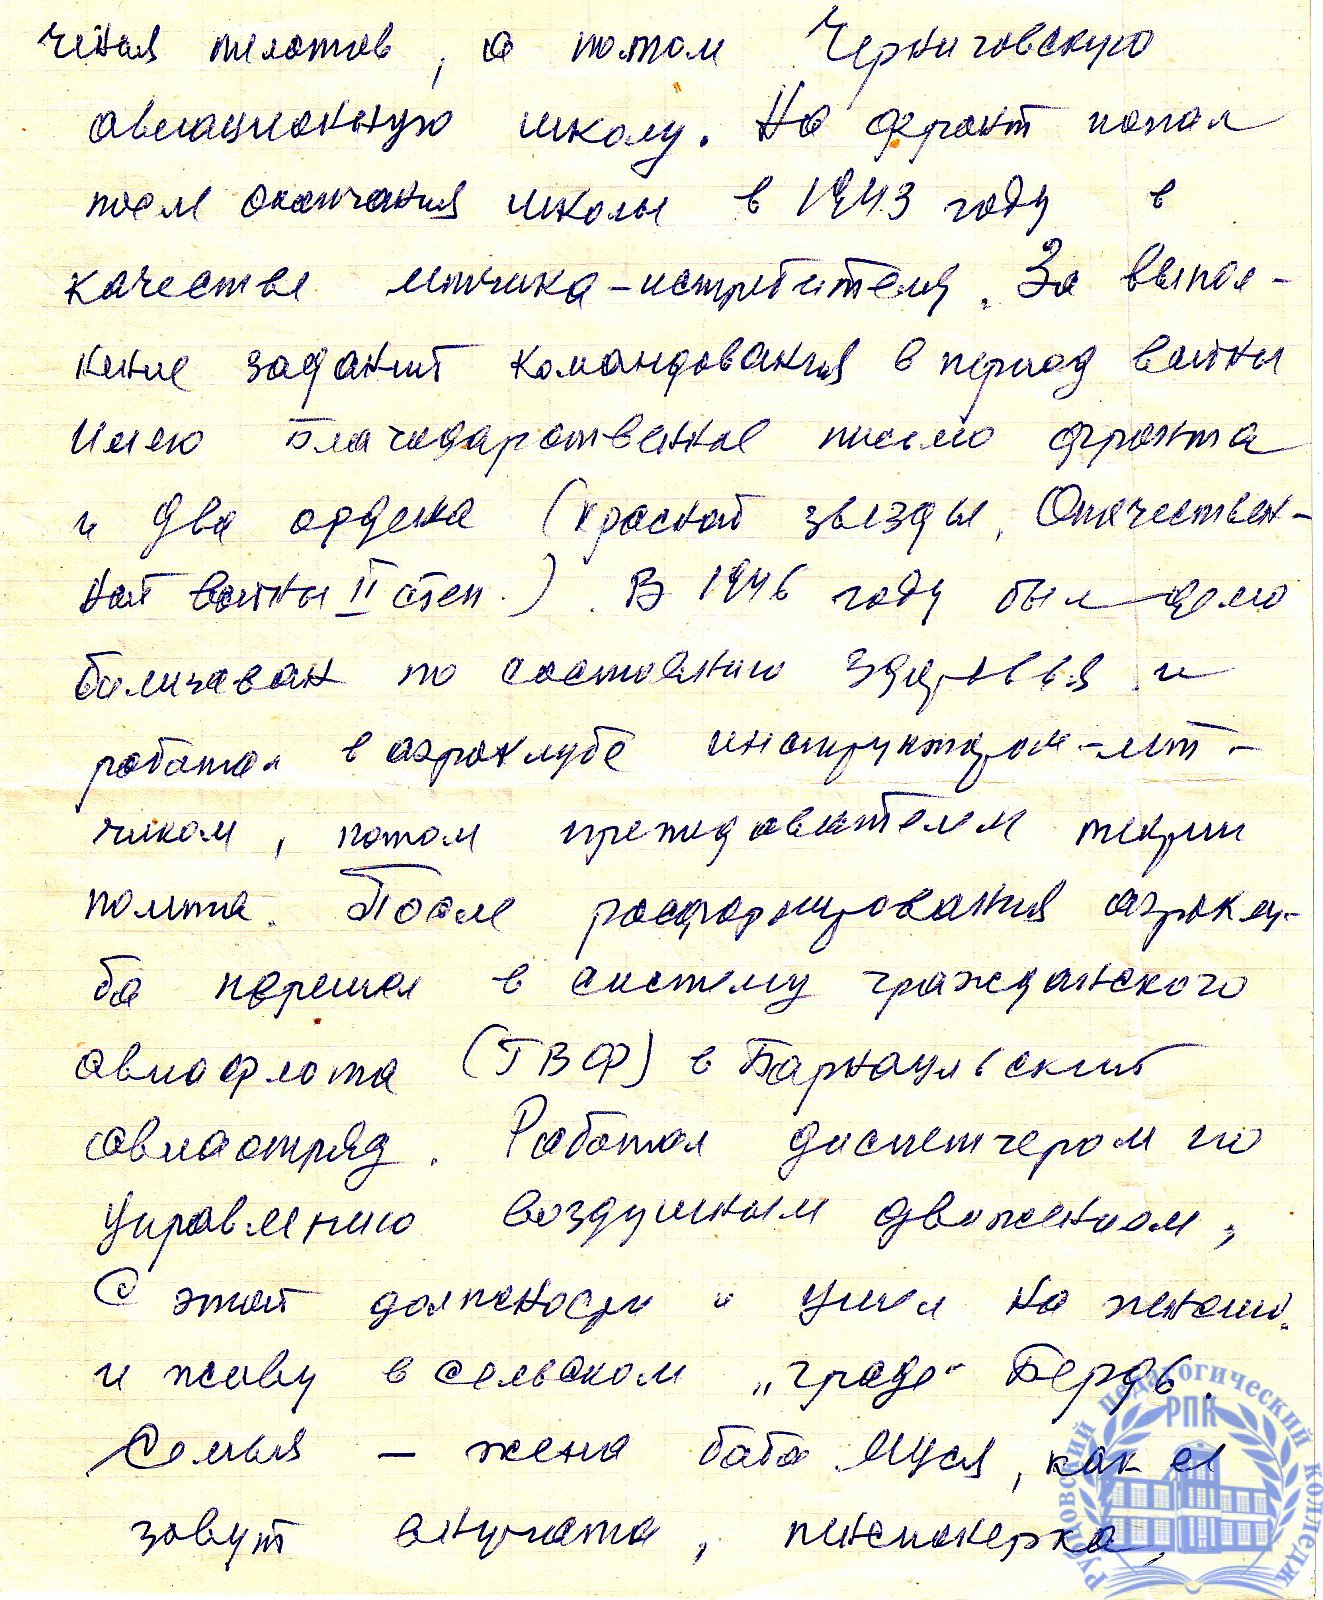 чения пилотов, а потом Черниговскую
авиационную школу. На фронт попал
после окончания школы в 1943 году в
качестве летчика-истребителя. За выпол-
нение заданий командования в период войны
имею благодарственное письмо фронта
и два ордена (Красной звезды, Отечествен-
ной войны II степ.). В 1946 году был демо
билизован по состоянию здоровья и
работал в аэроклубе инструктором-лёт-
чиком, потом преподавателем теории
полёта. После расформирования аэроклу-
ба перешел в систему гражданского
авиафлота (ГВФ) в Барнаульский
авиаотряд. Работал диспетчером по
управлению воздушным движением,
С этой должности и ушел на пенсию.
и живу в сельском „граде" Бердь.
Семья – жена баба Муся, как её
зовут внучата, пенсионерка,
Рубцовский педагогический колледж
РПК